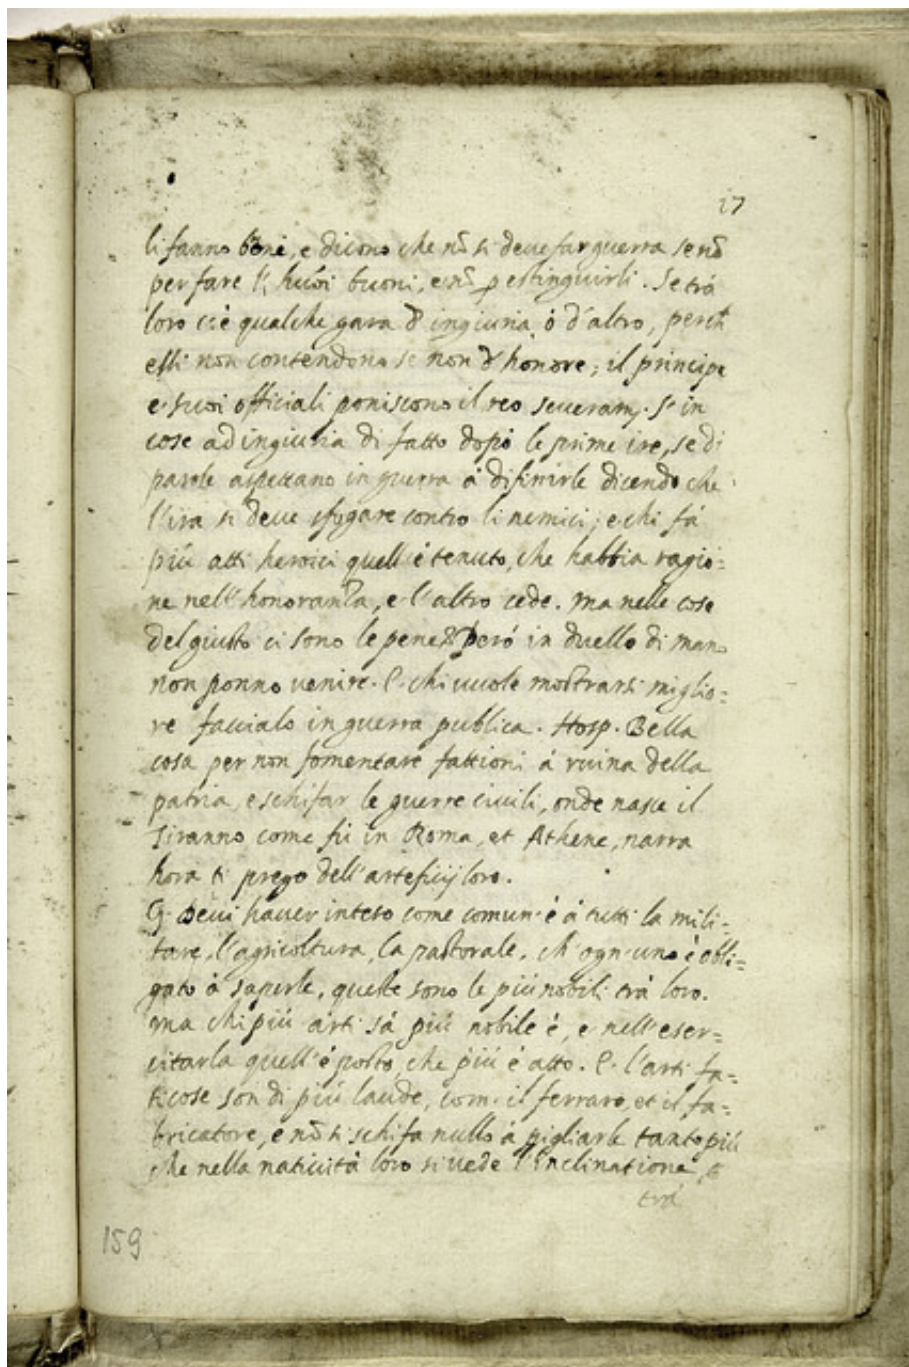 27
li fanno boni, e dicono che nō si deve far guerra se nō
per fare l'huoi buoni, e nō p estinguirli. Se trà
loro ci è qualche gara d' ingiuria, ò d'altro, perch
essi non contendono se non d' honore; il principe
e suoi officiali poniscono il reo severam. s'in
cose ad ingiuria di fatto dopò le prime ire, se di
parole aspettano in guerra à difinirle dicendo che
l'ira si deve sfogare contro li nemici; e chi fà
più atti heroici quell'è tenuto, che habbia ragio=
ne nell'honoranza, e l'altro cede. ma nelle cose
del giusto ci sono le pene. Però in duello di mano
non ponno venire. E chi vuole mostrarsi miglio=
re faccialo in guerra publica. Hosp. Bella
cosa per non fomentare fattioni à ruina della
patria, e schifar le guerre civili, onde nasce il
Tiranno come fù in Roma, et Athene, narra
hora ti prego dell'arteficij loro.
G. Devi haver inteso come comun'è à tutti la mili=
tare, l'agricoltura, la pastorale, ch'ogn'uno è obli=
gato à saperle, queste sono le più nobili trà loro.
ma chi più arti sà più nobile è, e nell'eser=
citarla quell'è posto, che più è atto. E l'arti fa=
ticose son di più laude, com'il ferraro, et il fa=
bricatore, e nō si schifa nullo à pigliarle tanto più
che nella natività loro si vede l'Inclinatione, e
trà
159